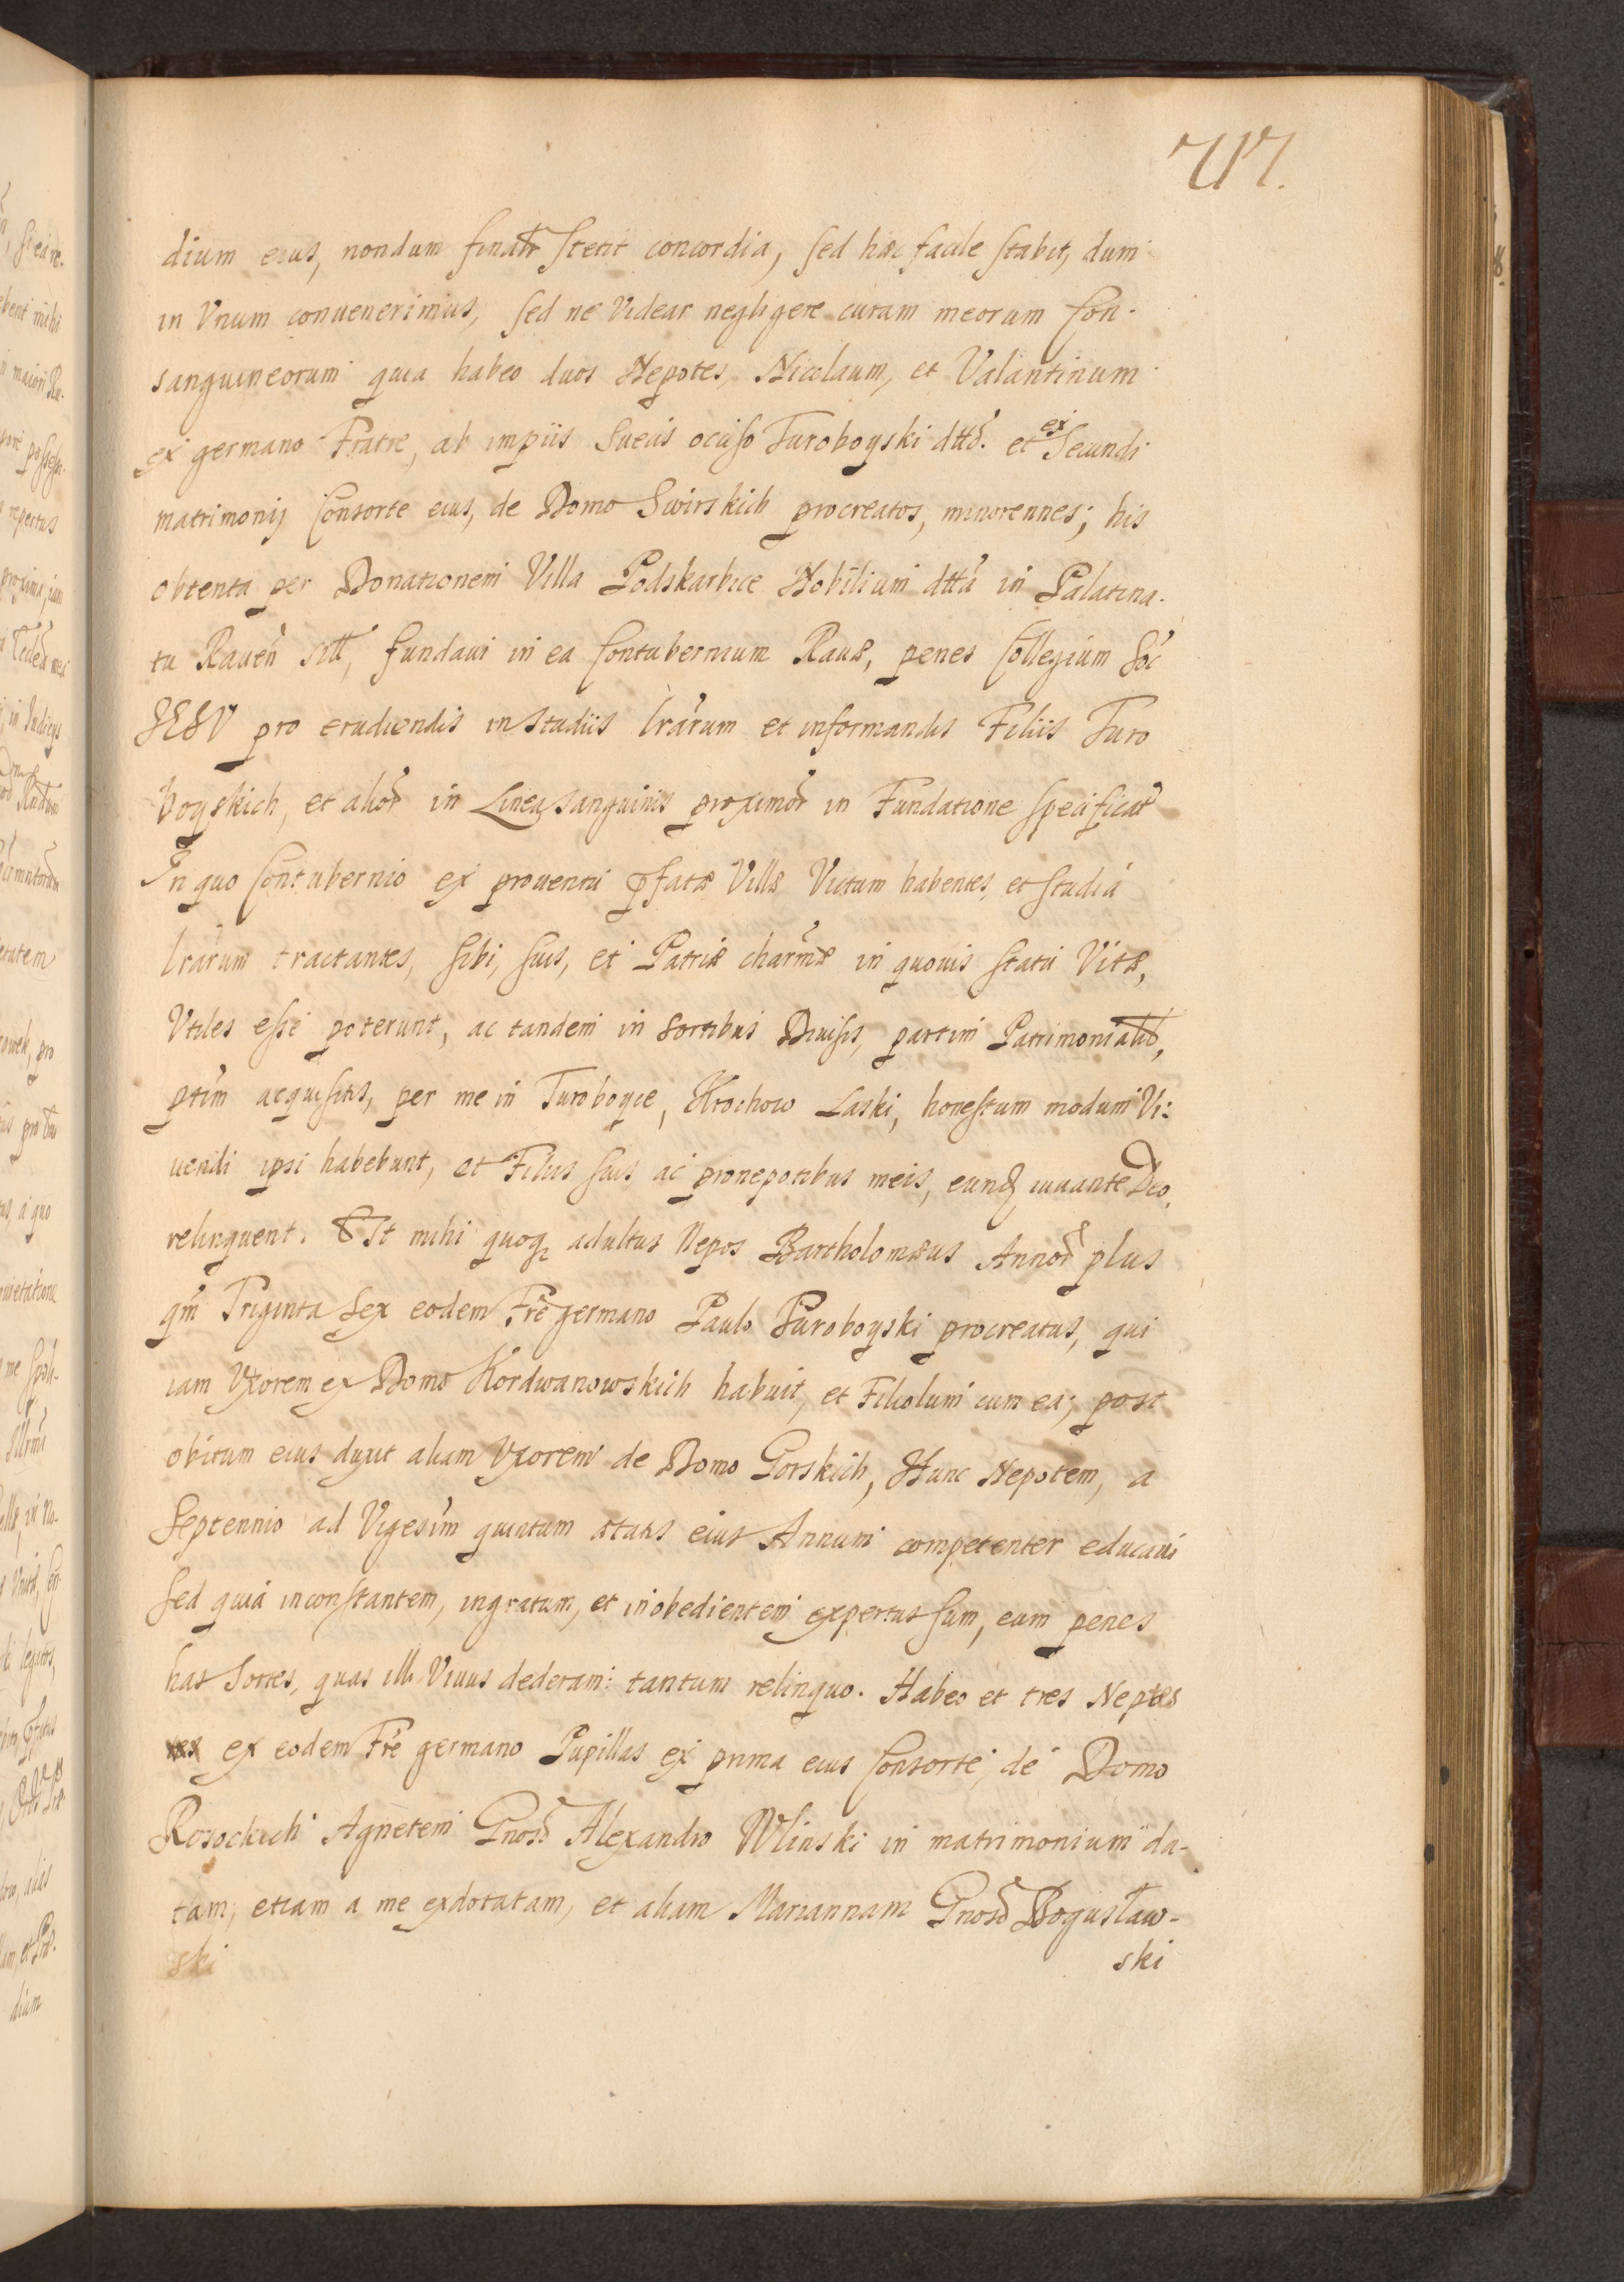 717.
dium eius, nondum finałr stetit concordia, sed hæc facile stabit, dum
in Vnum conuenerimus, sed ne Videar negligere curam meorum Con-
sanguineorum quia habeo duos Nepotes, Nicolaum, et Valantinum
ex germano Fratre, ab impiis Suecis occiso Turoboyski dtto. et ex Secundi
matrimonij Consorte eius, de Domo Swirskich procreatos, minorennes; his
obtenta per Donationem Villa Podskarbice Nobilium dtta in Palatina-
tu Rauen sitt, fundaui in ea Contubernium Rauæ, penes Collegium Soc
IESV pro erudiendis in studiis lrarum et informandis Filiis Turo
boyskich, et alior in Linea sanguinis proximor in Fundatione specificat
In quo Contubernio ex prouentu pfatæ Villæ Victum habentes, et studia
lrarum tractantes, sibi, suis, et Patriæ charmæ in quouis statu Vitæ,
Vtiles esse poterunt, ac tandem in sortibus Diuisis, partim Patrimonialib,
ptim acquisitis, per me in Turoboyce, Krochow Laski, honestum modum Vi:
uendi ipsi habebunt, et Filiis suis ac pronepotibus meis, eund, iuuante Deo,
relinquent. Est mihi quoq adultus Nepos Bartholomæus Annor plus
qm Triginta Sex eodem Fre germano Paulo Turoboyski procreatus, qui
iam Vxorem ex Domo Kordwanowskich habuit, et Filiolum cum ea; post
obitum eius duxit aliam Vxorem de Domo Gorskich, Hunc Nepotem, a
Septennio ad Vigesim quintum ætatis eius Annum competenter educaui
sed quia inconstantem, ingratum, et inobedientem expertus sum, eum penes
has Sortes, quas illi Viuus dederam: tantum relinquo. Habeo et tres Neptes
ex eodem Fre germano Pupillas ex prima eius Consorte, de Domo
Rosockich Agnetem Gnoso Alexandro Wlinski in matrimonium da-
tam, etiam a me exdotatam, et aliam Mariannam Gnoso Bogusław-
ski